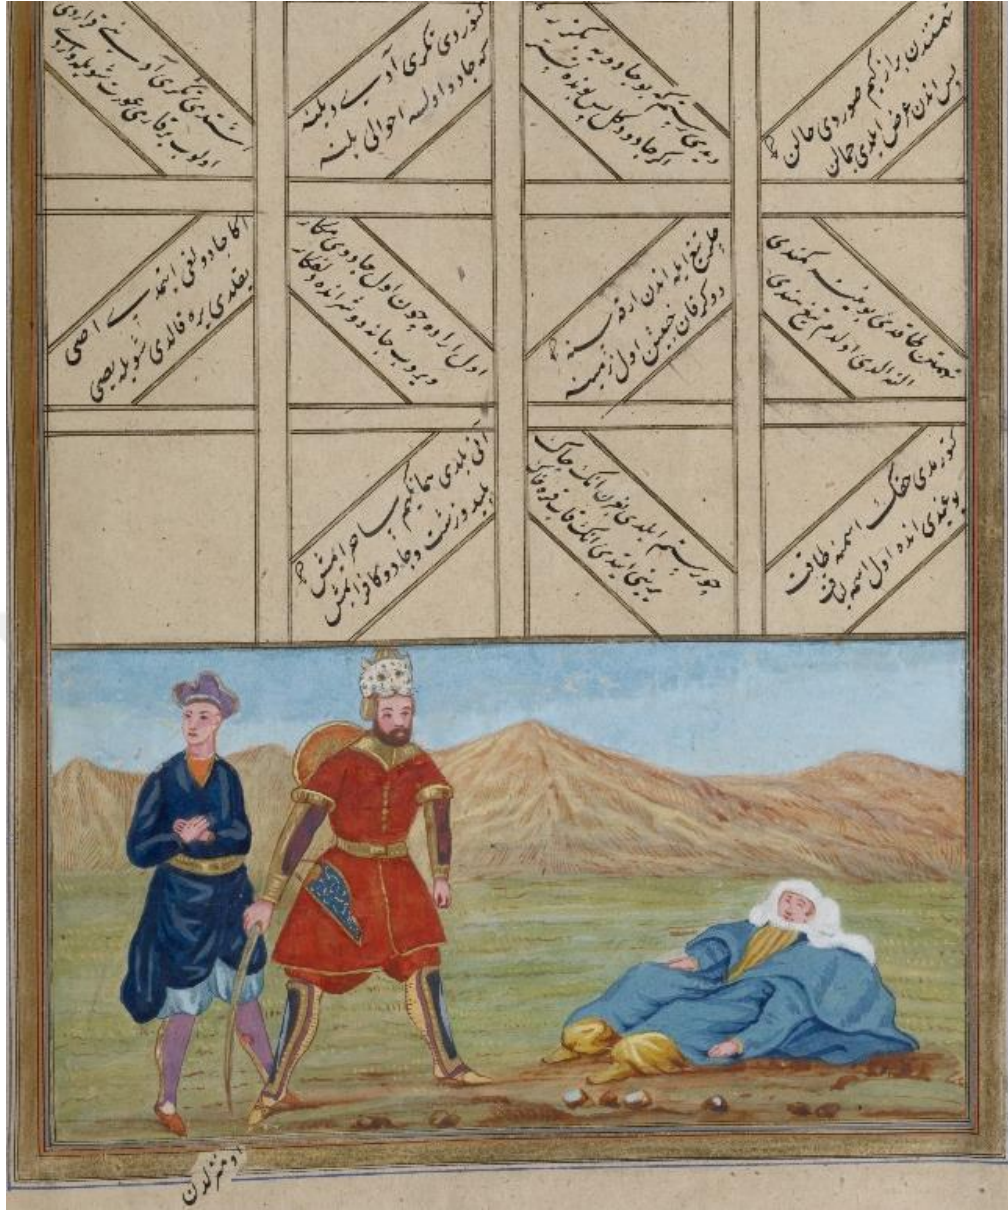 تهمتندن پر از کیم صوردی حالن
بس اندن عرض ایلدی جمالن
دیدی رستم که بو جادویه بکزر
اکر جادو دکل پس بونده
کتوردی تکری آدینی دیلینه
که جادو اولسه احوالی بلینه
اشتدی تکری آدینی قواردی
اولوب بر قاری عورت شویله واردی
تهمتن طاقدی بوینینه کمندی
الدی اولدم تیغ هندی
تیغ ایله اندن ارقه سینه
دوکر قان خبیثن اول زمینه
اول اراده چون اول جادوی مکار
ویروب جانه دوشر انده دلفکار
اکا جادولغی ایتمدی اصی
یقلدی یره قالدی شویله یصی
کتورمدی حقک اسمنه طاقت
یوغیدی انده اول اسمه لیاقت
چو رستم ایلدی بغرن انک چاک
یرینی ایتدی انک قره خاک
آنی بلدی همانکیم ساحر ایمش
پلید و زشت و جادو کافر ایمش
او منزلدن